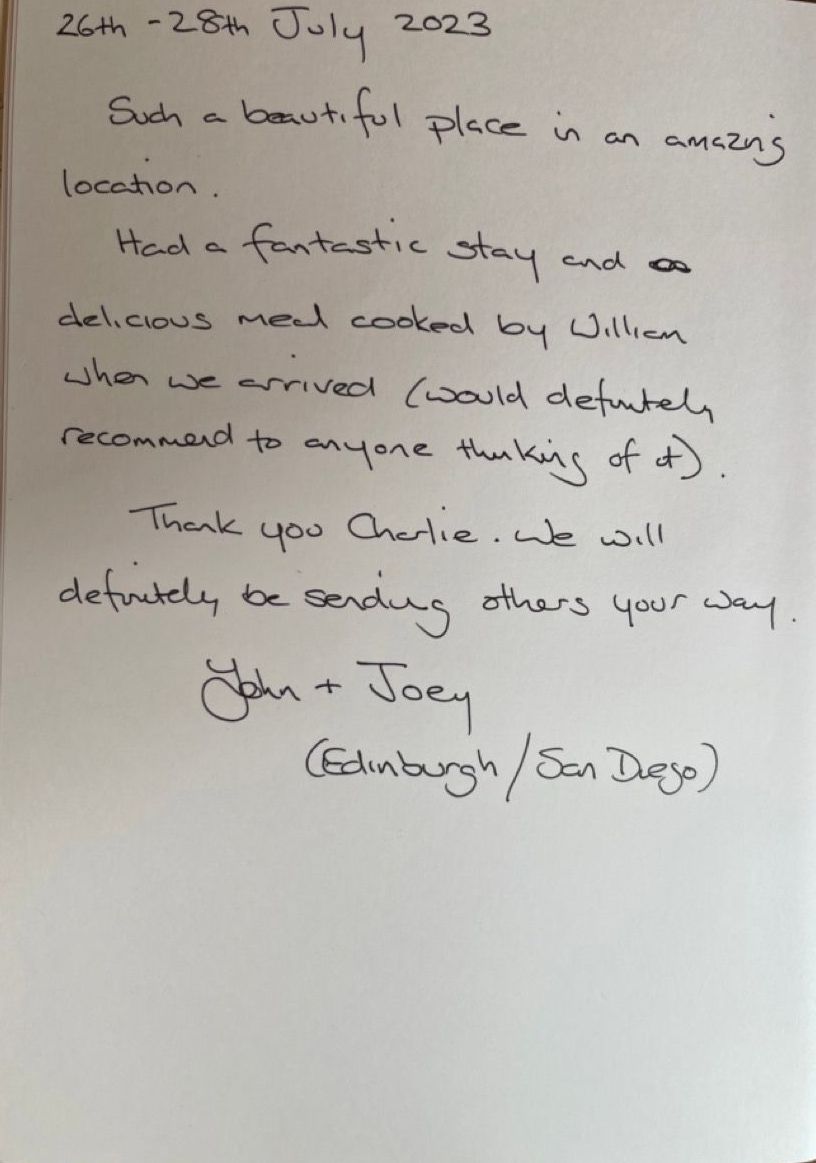 26th - 28th July 2023
Such a beautiful place in an amazing
location.
Had a fantastic stay and a
delicious meal cooked by William
when we arrived (would definitely
recommend to anyone thinking of it).
Thank you Charlie. We will
definitely be sending others your way.
John + Joey
(Edinburgh / San Diego)